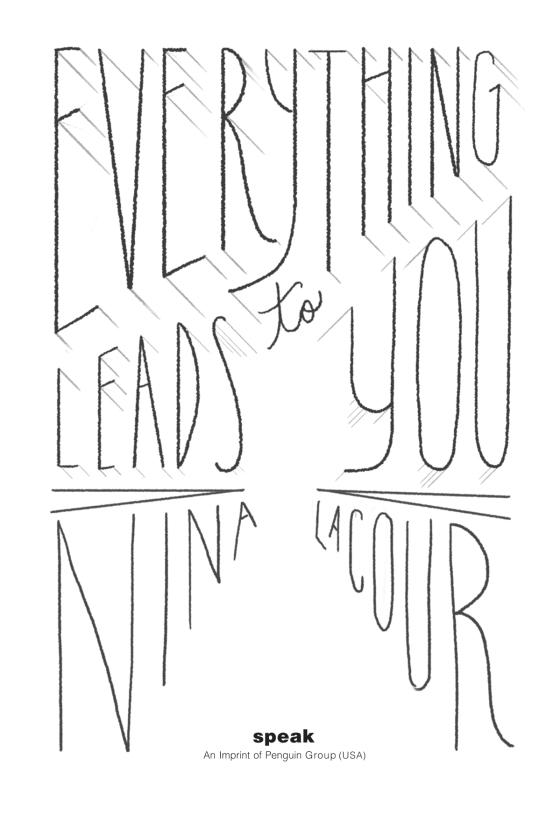 EVERYTHING
LEADS to YOU
NINA LACOUR
speak
An Imprint of Penguin Group (USA)